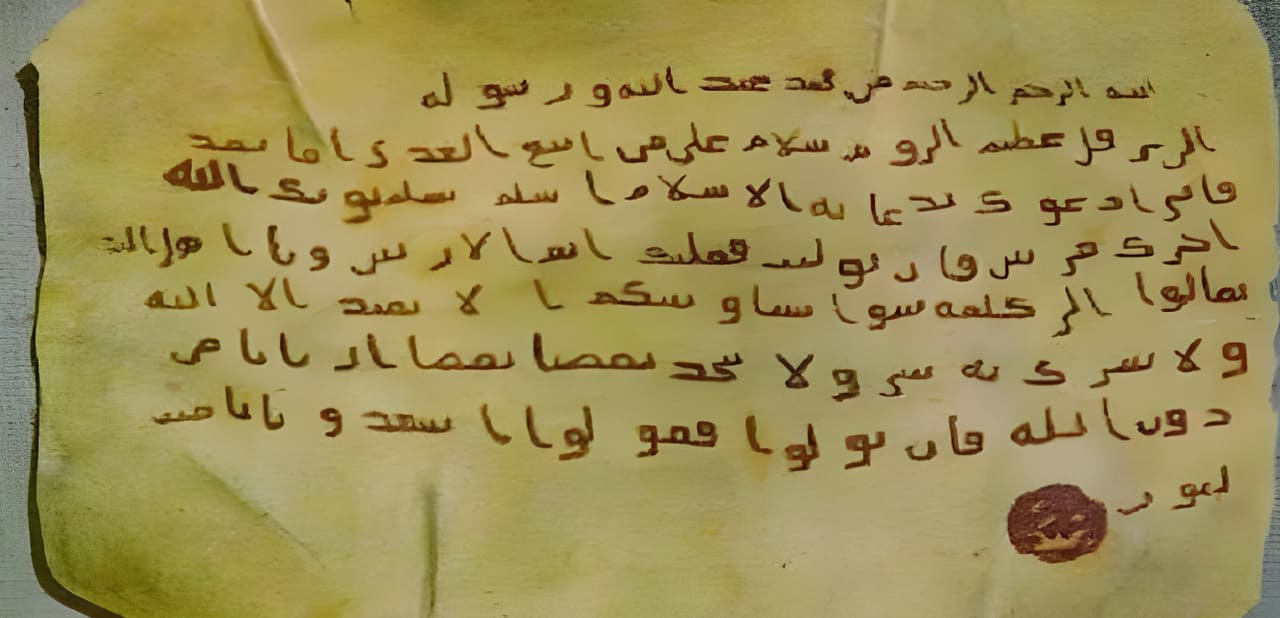 الله الرحمن الرحيم من محمد عبد الله ورسوله
الى هرقل عظيم الروم سلام على من اتبع الهدى اما بعد
فاني ادعوك بدعاية الاسلام اسلم تسلم يوتك الله
اجرك مرتين فان توليت فعليك اثم الاريسين ويا اهل الكتاب
تعالوا الى كلمة سوا بيننا وبينكم ا لا نعبد الا الله
ولا نشرك به شي ولا يتخذ بعضنا بعضا اربابا من
دون الله فان تولوا فقولوا اشهدوا بانا مس
لمون